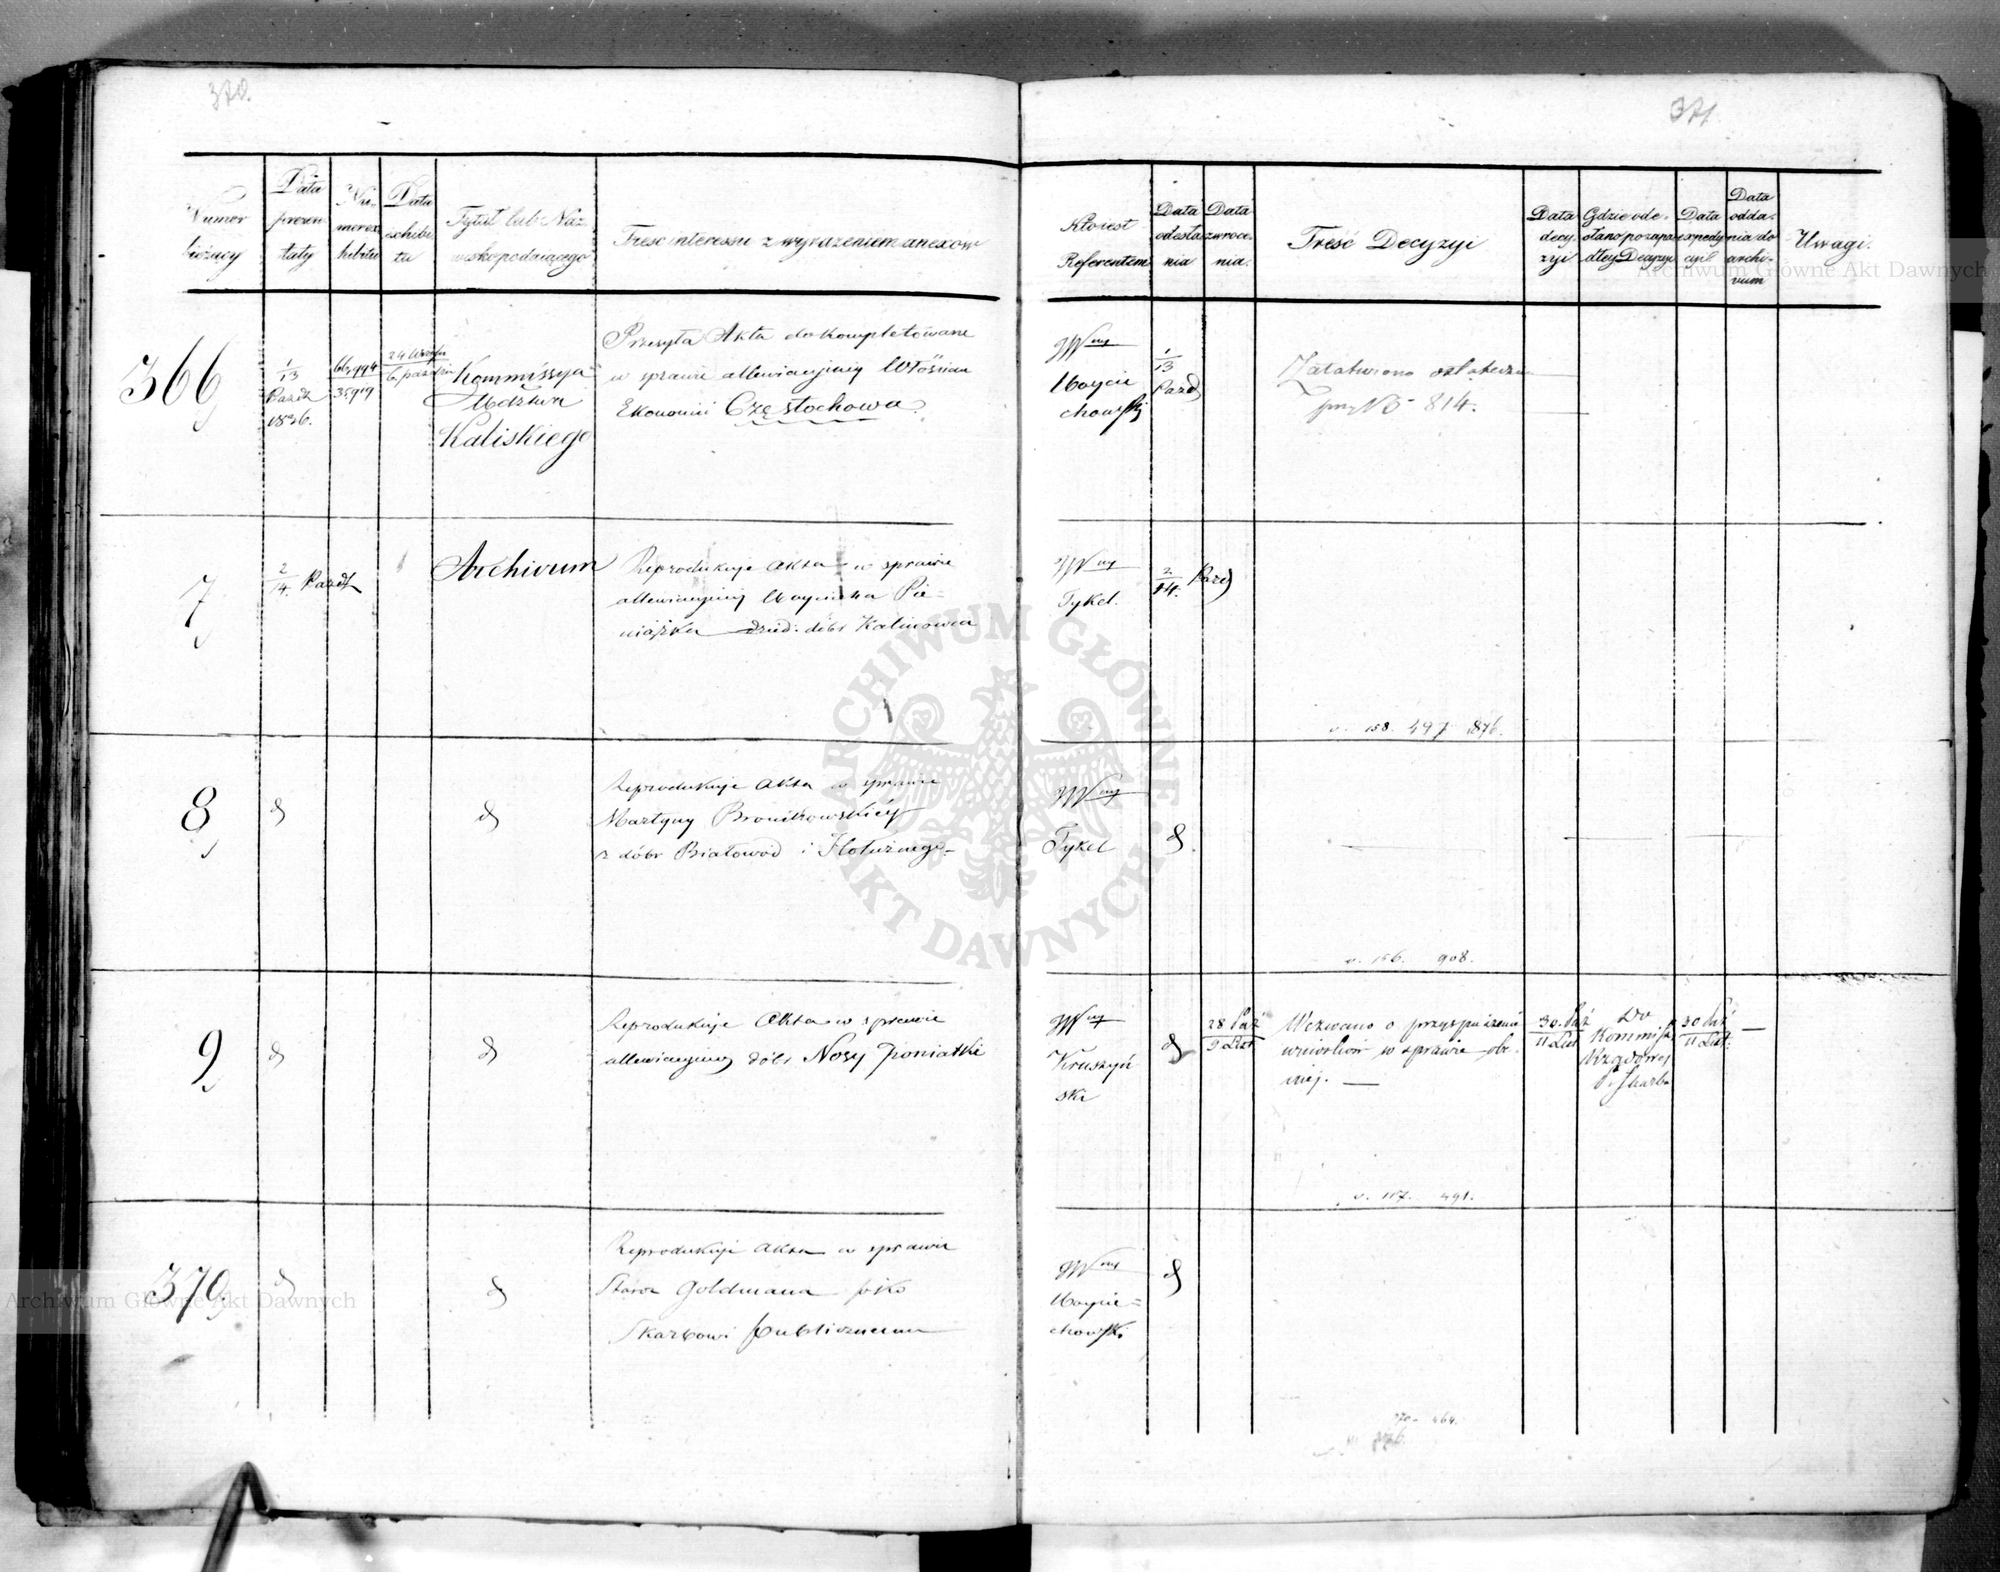 370.
Numer
bieżący
Data
prezen
taty
Nu-
merex
hibitu
Data
exhibi
tu
Tytuł lub Naz
wisko podaiącego
Treść interessu z wyrażeniem anexow
366
1/13
Pazdr
1836.
66,994
35919
6. pazdzr
Kommissya
Wdztwa
Kaliskiego
Przesyła Akta do kompletowane
w sprawie allewiacyjney Włościan
Ekonomii Częstochowa.
7
2/14. Pazdr
Archiwum
Reprodukuje akta w sprawie
allewiacyjney Woyciecha Pie-
niążka dzied. dóbr Kalinowa
8
d
d
Reprodukuje akta w sprawie
Martyny Bronikowskiéy
z dóbr Białowod i
9
d
d
Reprodukuje Akta w sprawie
allewiacyjney dóbr Nosy Poniatki
370.
d
d
Reprodukuje akta w sprawie
Staroz. Goldmana p-ko
Skarbowi publicznemu
371
Kto iest
Referentem
Data
odesła
nia
Data
zwroce-
nia.
Treść Decyzyi
Data
decy-
zyi
Gdzie ode-
słano po zapa-
dłey Decyzyi
Data
expedy
cyi
Data
odda-
nia do
archi-
wum
Uwagi.
Wny
Woycie
chowski
1/13
Pazd
Załatwiono ostatecznie
przy No 814.
Wny
Tykel.
2/14. Pazd
v. 158. 497 876.
Wny
Tykel
d.
v. 156. 908.
Wny
Kruszyń
ski
d
28 Paź
9 List
Wezwano o przyspieszenie
wniosków w sprawie obe-
cnej. —
30. Paź
11 List
Do
Kommiss
Rządowej
P. i Skarbu
30 Paź
11 List.
—
v. 117. 491.
Wny
Woycie=
chowski
d
270 - 464.
Archiwum Główne Akt Dawnych
ARCHIWUM GŁÓWNE AKT DAWNYCH
Archiwum Główne Akt Dawnych